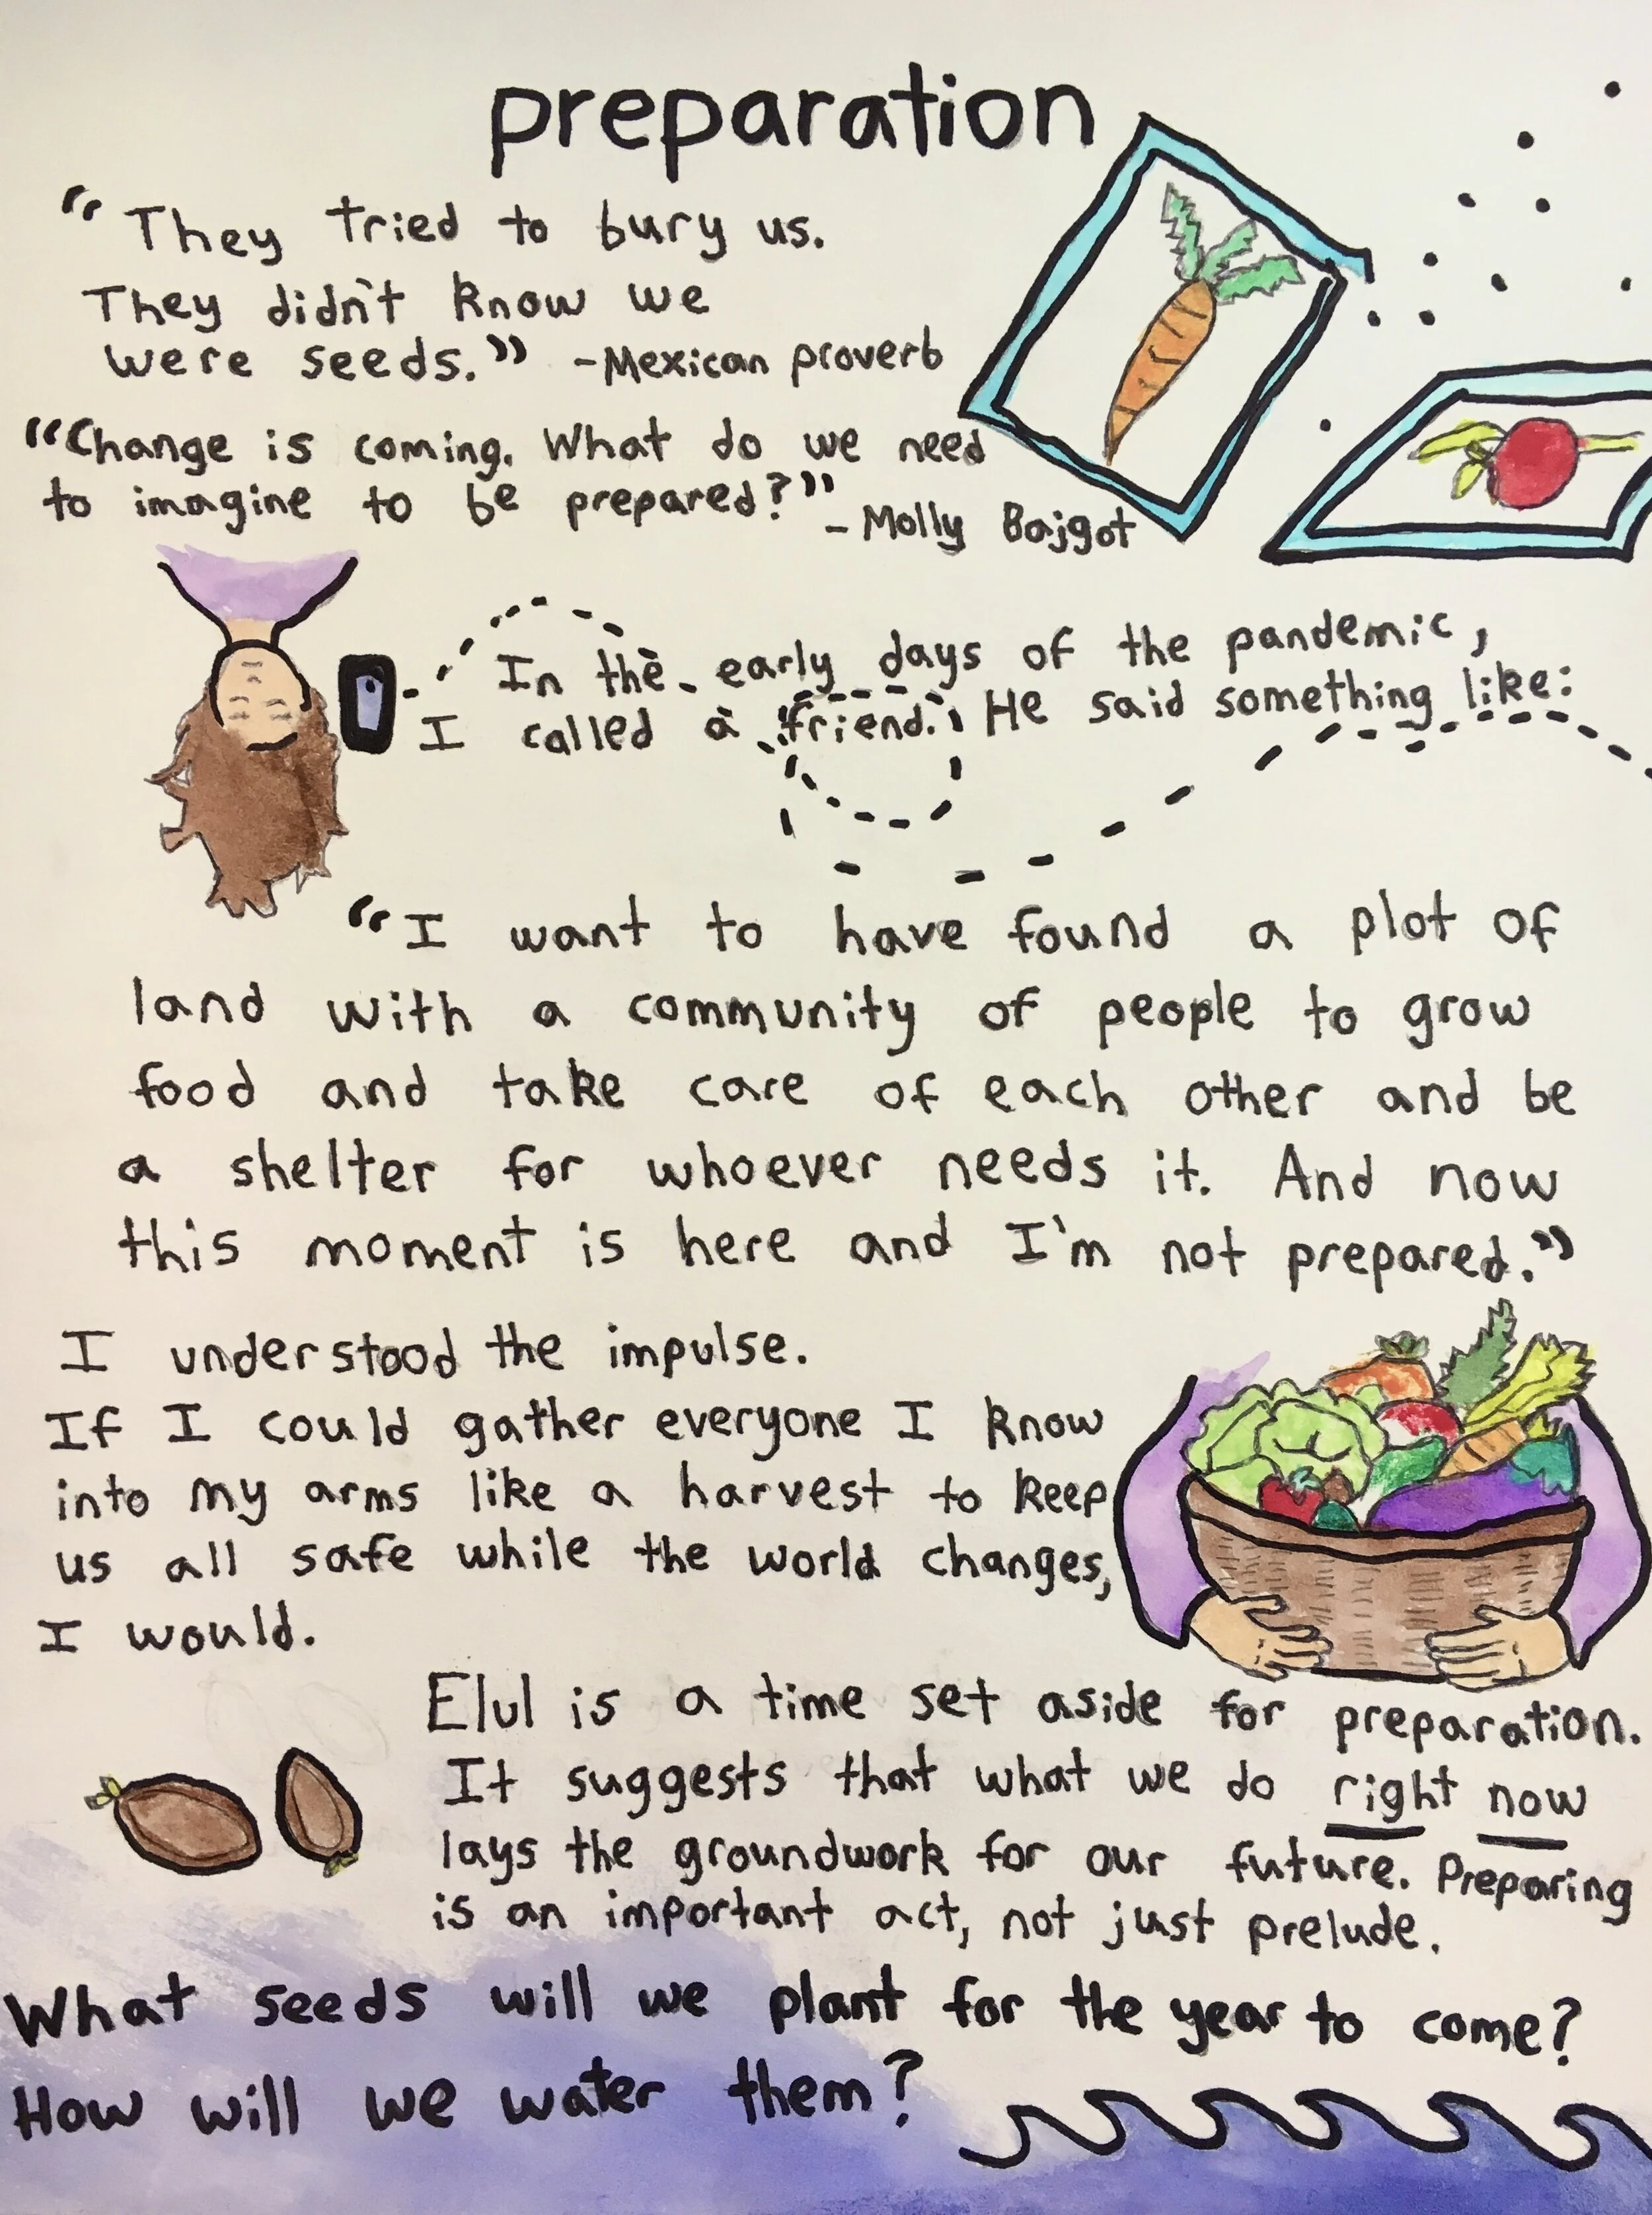 preparation
"They tried to bury us.
They didn't know we
were seeds." -Mexican proverb
"Change is coming. What do we need
to imagine to be prepared?"
- Molly Bajgot
In the early days of the pandemic,
I called a friend. He said something like:
"I want to have found a plot of
land with a community of people to grow
food and take care of each other and be
a shelter for whoever needs it. And now
this moment is here and I'm not prepared."
I understood the impulse.
If I could gather everyone I know
into my arms like a harvest to keep
us all safe while the world changes,
I would.
Elul is a time set aside for preparation.
It suggests that what we do right now
lays the groundwork for our future. Preparing
is an important act, not just prelude.
What seeds will we plant for the year to come?
How will we water them?